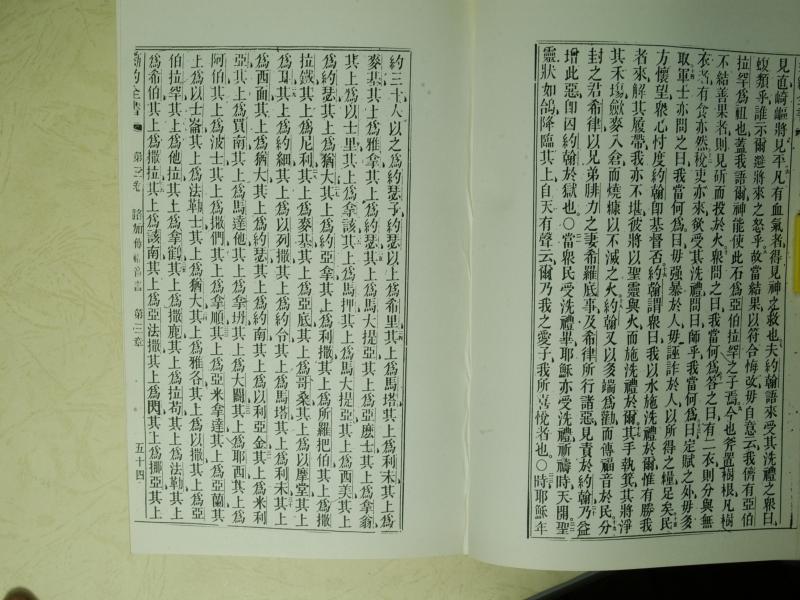 見直崎嶇將見平凡有血氣者得見神之救也夫約翰語來受其洗禮之衆曰
蝮類乎誰示爾避將來之怒乎故當結果以符合悔改毋自意云我儕有亞伯
拉罕爲祖也蓋我語爾神能使此石爲亞伯拉罕之子焉今也斧置樹根凡樹
不結善果者則見斫而投於火衆問之曰我當何爲答之曰有二衣則分與無
衣者有食亦然稅吏亦來欲受其洗禮問曰師乎我當何爲曰定賦之外毋多
取軍士亦問之曰我當何爲曰毋强暴於人毋誣詐於人以所得之糧足矣民
方懷望衆心忖度約翰卽基督否約翰謂衆曰我以水施洗禮於爾惟有勝我
者來解其履帶我亦不堪彼將以聖靈與火而施洗禮於爾其手執箕其將淨
其禾塲斂麥入倉而燒糠以不滅之火約翰又以多端爲勸而傳福音於民分
封之君希律以兄弟腓力之妻希羅底事及希律所行諸惡見責於約翰乃益
增此惡卽囚約翰於獄也○當衆民受洗禮畢耶穌亦受洗禮祈禱時天開聖
靈狀如鴿降臨其上自天有聲云爾乃我之愛子我所喜悅者也○時耶穌年
約三十人以之爲約瑟子約瑟以上爲希里其上爲馬塔其上爲利未其上爲
麥基其上爲雅拿其上爲約瑟其上爲馬大提亞其上爲亞麽士其上爲拿翁
其上爲以士里其上爲拿該其上爲馬押其上爲馬大提亞其上爲西美其上
爲約瑟其上爲猶大其上爲約亞拿其上爲利撒其上爲所羅把伯其上爲撒
拉鐵其上爲尼利其上爲麥基其上爲亞底其上爲哥桑其上爲以摩堂其上
爲耳其上爲約細其上爲以列撒其上爲約令其上爲馬塔其上爲利未其上
爲西面其上爲猶大其上爲約瑟其上爲約南其上爲以利亞金其上爲米利
亞其上爲買南其上爲馬達他其上爲拿坍其上爲大闢其上爲耶西其上爲
阿伯其上爲波士其上爲撒們其上爲拿順其上爲亞米拿達其上爲亞蘭其
上爲以士崙其上爲法勒士其上爲猶大其上爲雅各其上爲以撒其上爲亞
伯拉罕其上爲他拉其上爲拿鶴其上爲撒鹿其上爲拉苟其上爲法勒其上
爲希伯其上爲撒拉其上爲該南其上爲亞法撒其上爲閃其上爲挪亞其上
新約全書 第三卷 路加傳福音書 第三章 五十四